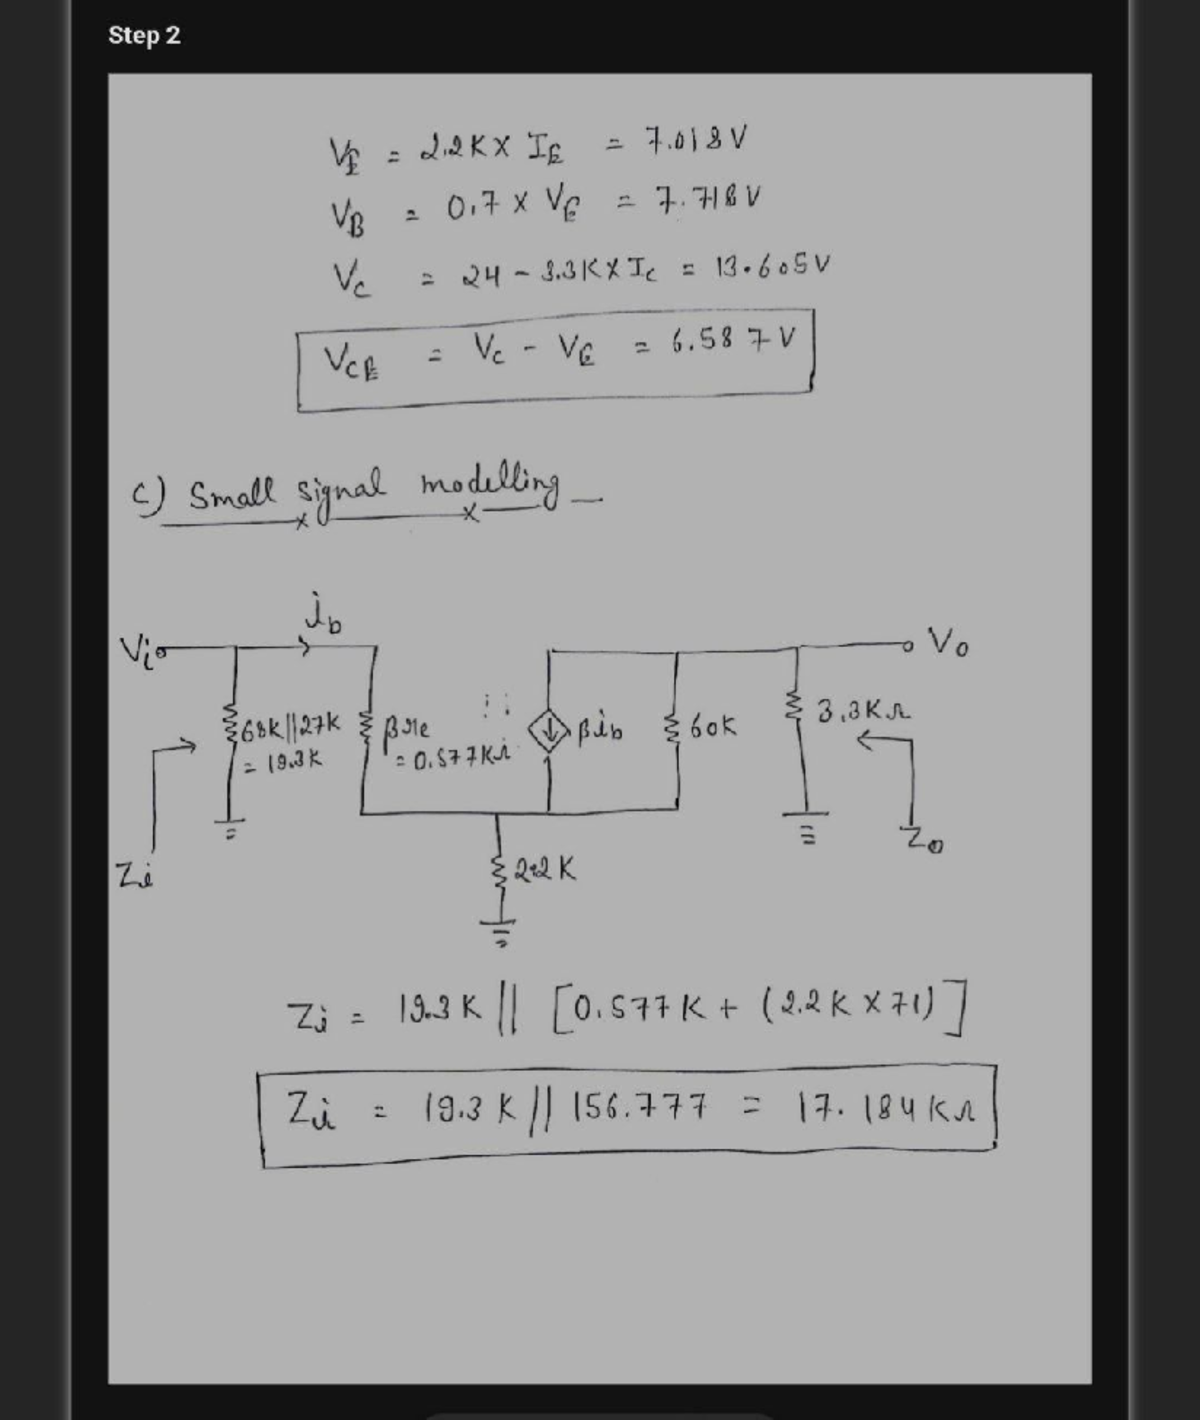 Step 2
VE = 2.2K X IE = 7.018V
VB = 0.7 X VE = 7.718V
VC = 24 - 3.3K X IC = 13.605V
VCE = VC - VE = 6.587V
C) Small signal modelling
ib
Vi
Vo
68K||27K
= 19.3K
βre
= 0.577KΩ
βib
60K
3.3KΩ
Zi
Zo
2.2K
Zi = 19.3K || [0.577K + (2.2K X 71)]
Zi = 19.3K || 156.777 = 17.184KΩ